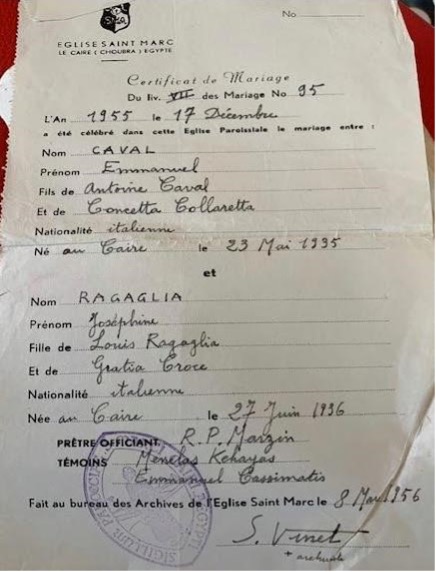 SMA
No
EGLISE SAINT MARC
LE CAIRE (CHOUBRA) EGYPTE
Certificat de Mariage
Du liv. VII des Mariage No 95
L'An 1955 le 17 Décembre
a été célébré dans cette Eglise Paroissiale le mariage entre :
Nom CAVAL
Prénom Emmanuel
Fils de Antoine Caval
Et de Concetta Collaretta
Nationalité italienne
Né au Caire le 23 Mai 1935
et
Nom RAGAGLIA
Prénom Joséphine
Fille de Louis Ragaglia
Et de Gratia Croce
Nationalité italienne
Née au Caire le 27 Juin 1936
PRÊTRE OFFICIANT R.P. Marzin
TÉMOINS Ménélas Kehayas
Emmanuel Cassimatis
Fait au bureau des Archives de l'Eglise Saint Marc le 8 Mai 1956
S. Vinet